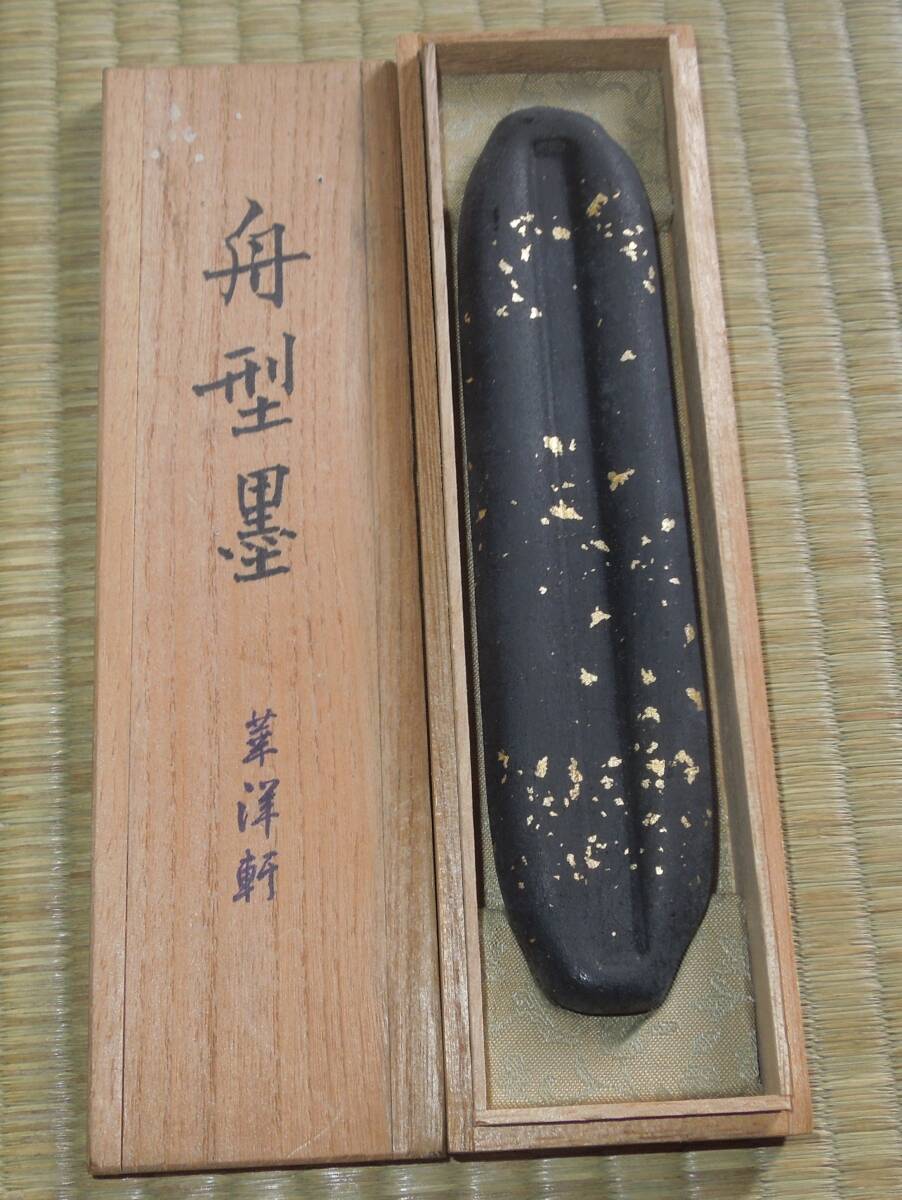 舟型墨
華洋軒